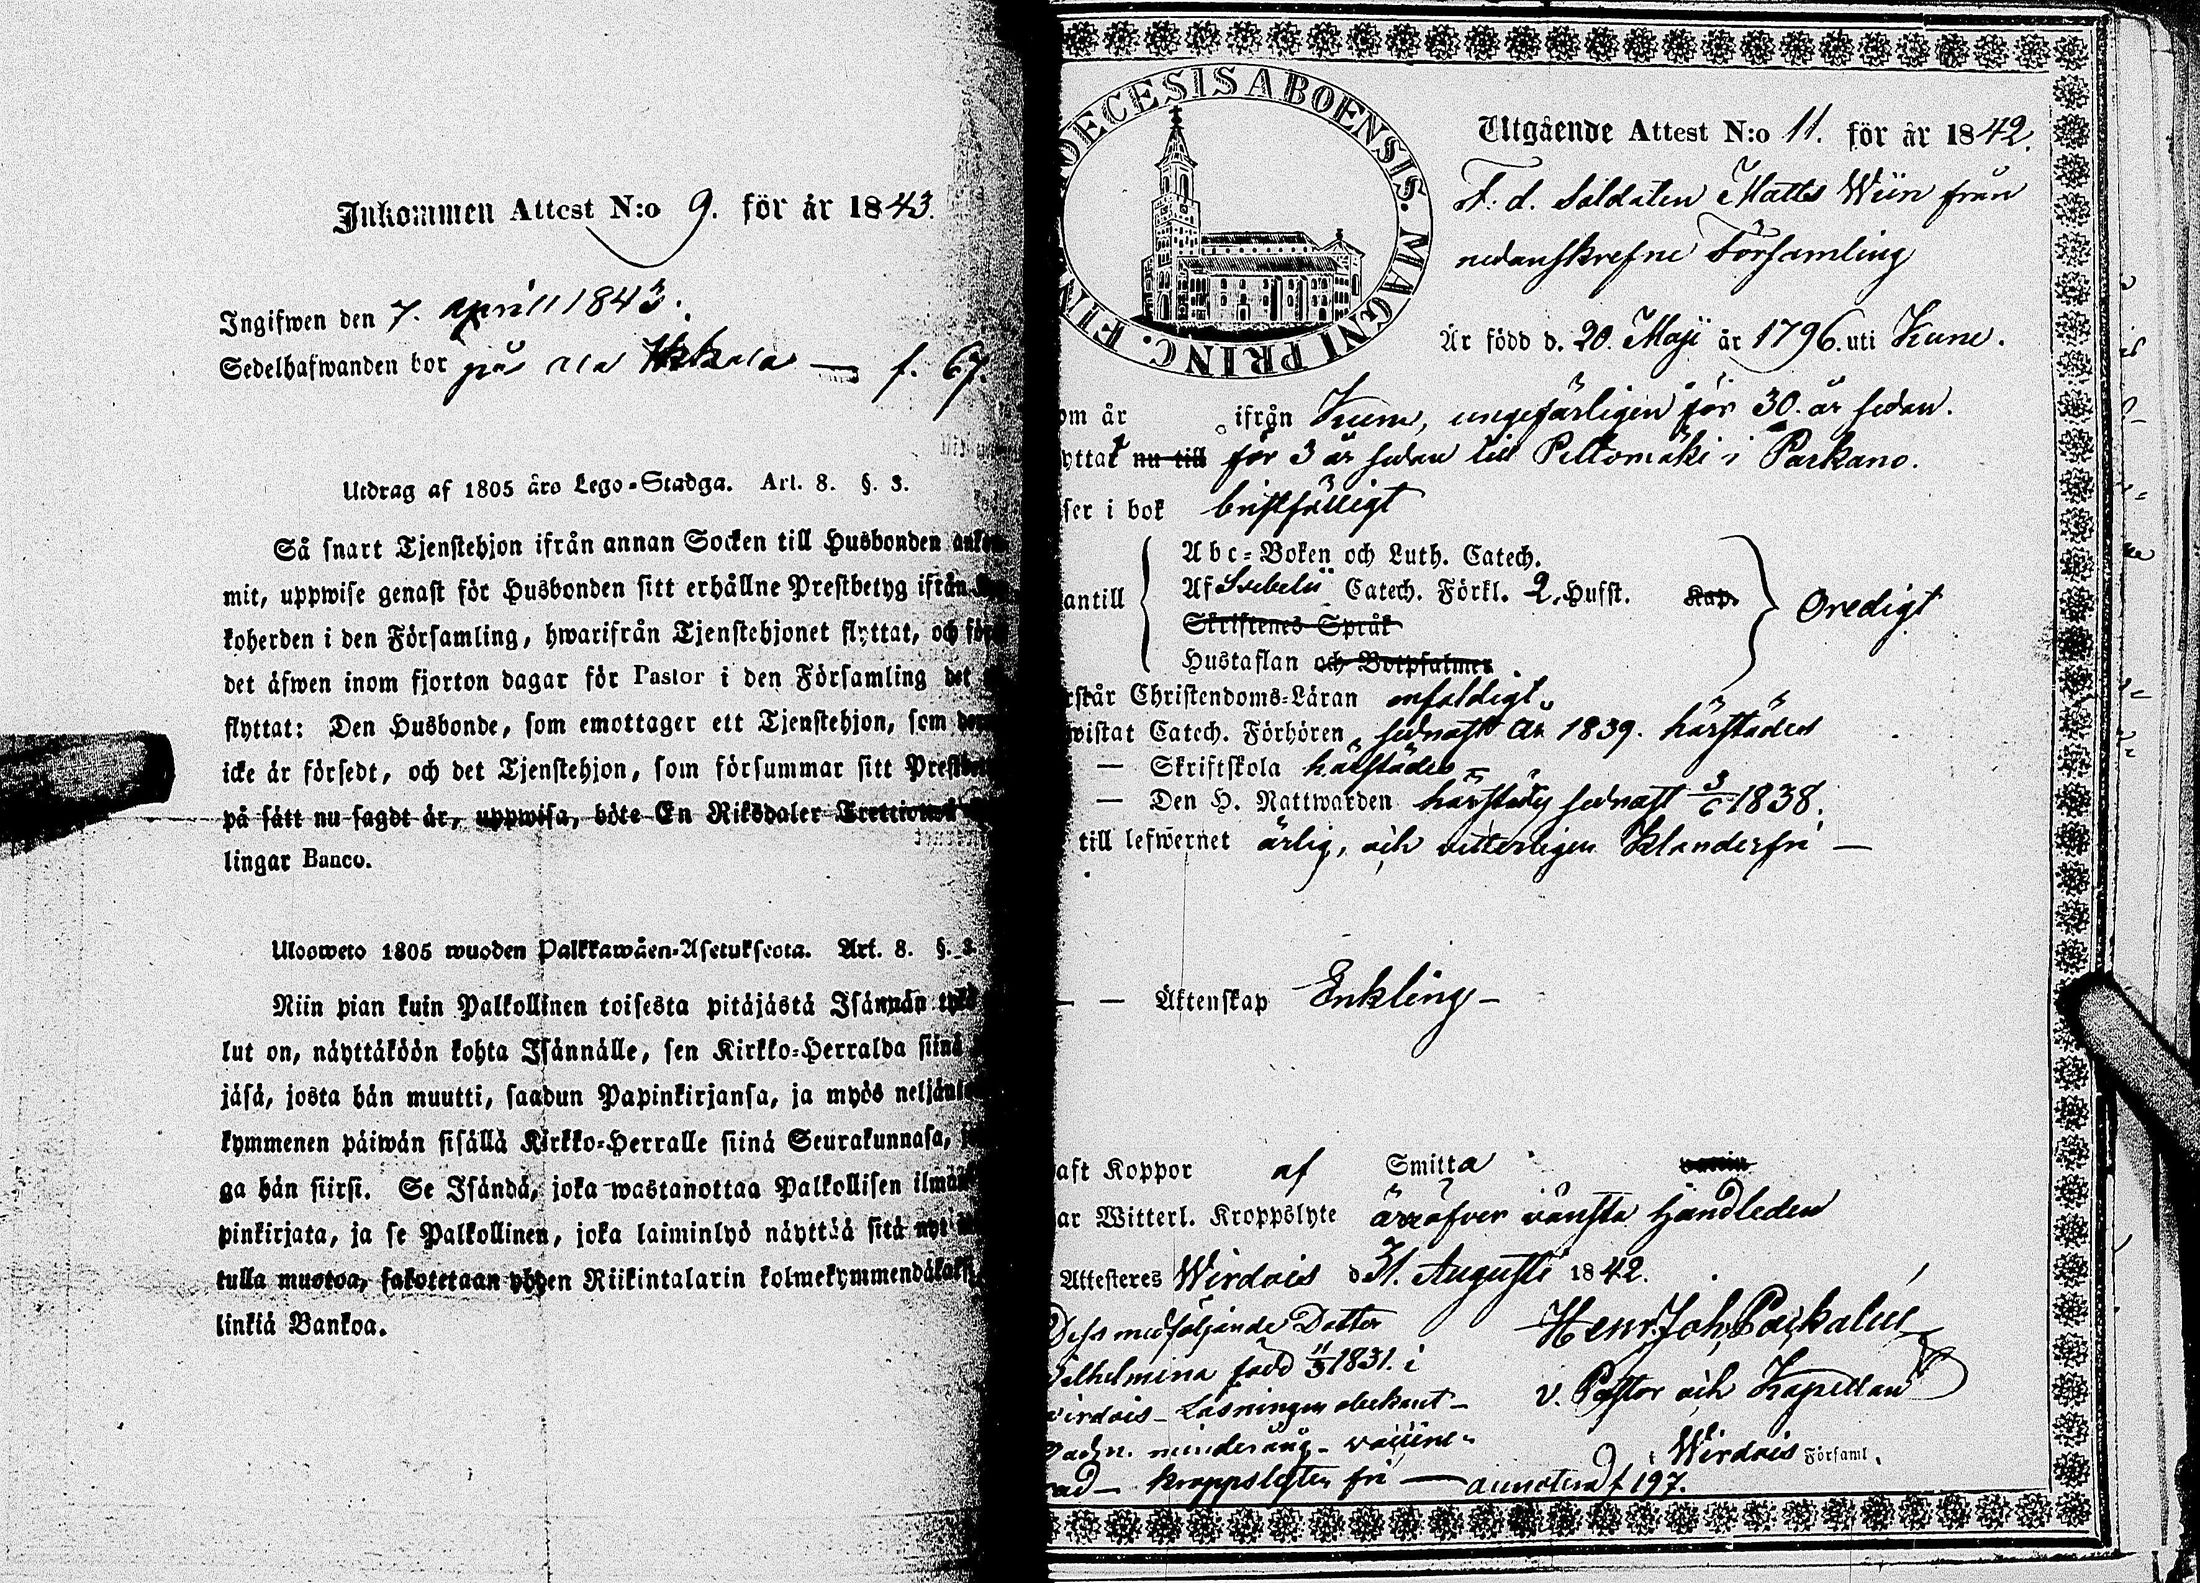 Inkommen Attest N:o 9. för år 1843.
Ingifwen den 7. april 1843.
Sedelhafwanden bor på f. 67.
Utdrag af 1805 års Lego-Stadga. Art. 8. §. 3.
Så snart Tjenstehjon ifrån annan Socken till Husbonden
mit, uppwise genast för Husbonden sitt erhållne Prestbetyg ifrån
koherden i den Församling, hwarifrån Tjenstehjonet flyttat, och
det äfwen inom fjorton dagar för Pastor i den Församling det
flyttat: Den Husbonde, som emottager ett Tjenstehjon, som
icke är försedt, och det Tjenstehjon, som försummar sitt
på sätt nu sagdt är, uppwisa, böte En Riksdaler
lingar Banco.
Ulosweto 1805 wuoden Palkkawäen-Asetuksesta. Art. 8. §. 3.
Niin pian kuin Palkollinen toisesta pitäjästä Isännän
lut on, näyttäköön kohta Isännälle, sen Kirkko-Herralda siinä
jäsä, josta hän muutti, saadun Papinkirjansa, ja myös
kymmenen päiwän sisällä Kirkko-Herralle siinä Seurakunnasa,
ga hän siirsi. Se Isändä, joka wastanottaa Palkollisen
pinkirjata, ja se Palkollinen, joka laiminlyö näyttää sitä nyt
tulla muotoa, sakotetaan yhden Riikintalarin
linkiä Bankoa.
DIOECESIS ABOENSIS. MAGNI PRINC. FIN
Utgående Attest N:o 11. för år 1842.
F. d. Soldaten Matts Wiin från
nedanskrefne Församling
Är född d. 20. Maji år 1796. uti Kumo.
om år ifrån Kumo, ungefärligen för 30. år sedan.
yttat nu till för 3 år sedan till Peltomäki i Parkano.
ser i bok bristfälligt
antill
Abc-Boken och Luth. Catech.
Af Svebelii Catech. Förkl. 2. Hufst. Kap.
Skriftenes Språk
Hustaflan och Botpsalmer
Oredigt
rstår Christendoms-Läran enfaldigt.
wistat Catech. Förhören, sednast år 1839. härstädes
— Skriftskola härstädes —
— Den H. Nattwarden härstädes sednast 3/6 1838.
till lefwernet ärlig, och vetterligen klanderfri —
— — Äktenskap Enkling —
aft Koppor af Smitta vaccin
ar Witterl. Kroppslyte ärr öfver vänstra handleden
Attesteres Wirdois d 31. Augusti 1842.
Dess medföljande Dotter
Wilhelmina född 11/3 1831. i
Wirdois — Läsningen obekant —
minderårig — vaccine-
rad — kroppslyten fri — annoterad f 197.
Henr. Joh.
v. Pastor och Kapellan
i Wirdois Församl.